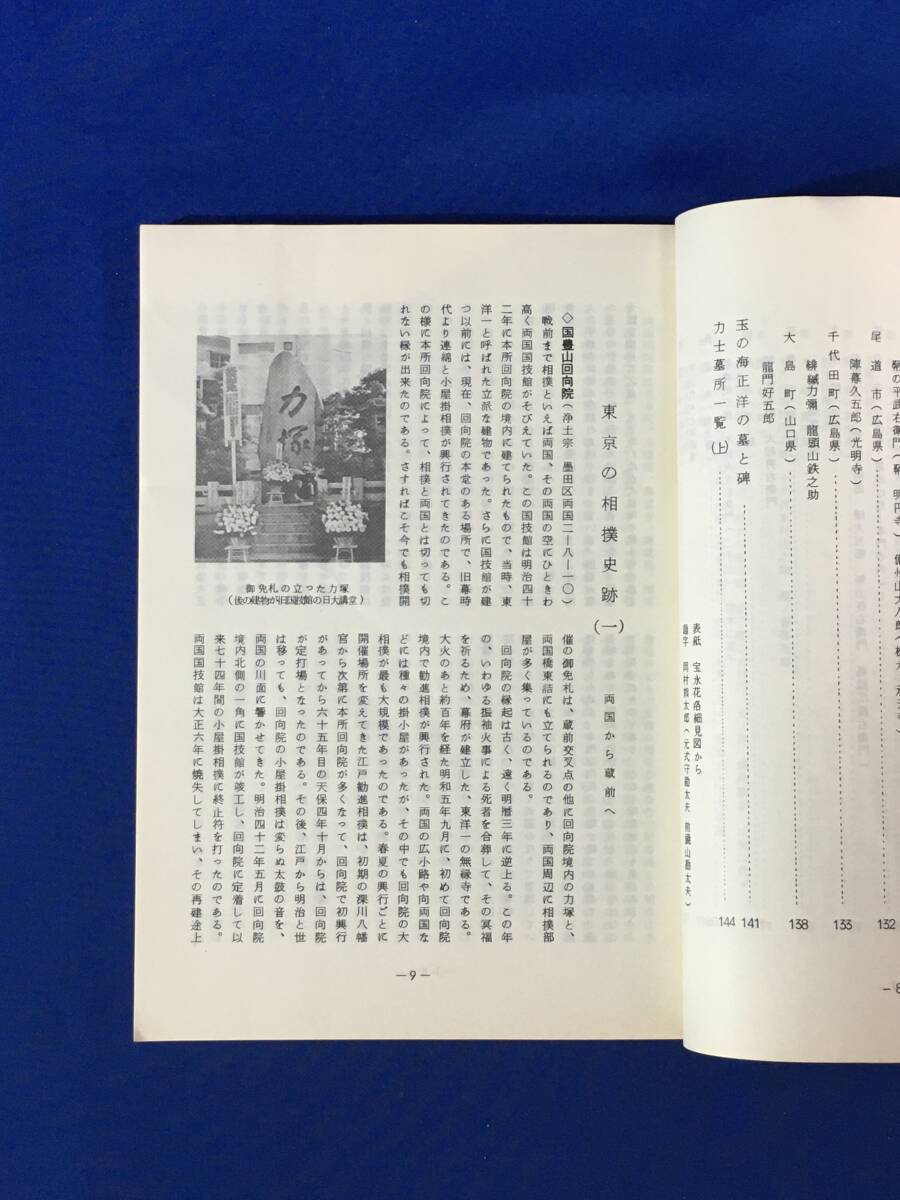 鞆の平武右衛門(鞆 明円寺)
尾道市(広島県)……132
陣幕久五郎(光明寺)
千代田町(広島県)……133
緋縅力彌 龍頭山鉄之助
大島町(山口県)……138
龍門好五郎
玉の海正洋の墓と碑……141
力士墓所一覧(上)……144
表紙 宝永花洛細見図から
-8
東京の相撲史跡(一) 両国から蔵前へ
◇国豊山回向院(浄土宗 墨田区両国二ー八ー一〇)
戦前まで相撲といえば両国、その両国の空にひときわ
高く両国国技館がそびえていた。この国技館は明治四十
二年に本所回向院の境内に建てられたもので、当時、東
洋一と呼ばれた立派な建物であった。さらに国技館が建
つ以前には、現在、回向院の本堂のある場所で、旧幕時
代より連綿と小屋掛相撲が興行されてきたのである。こ
の様に本所回向院によって、相撲と両国とは切っても切
れない縁が出来たのである。さすればこそ今でも相撲開
力塚
御免札の立った力塚
(後の建物が旧国技館の日大講堂)
催の御免札は、蔵前交叉点の他に回向院境内の力塚と、
両国橋東詰にも立てられるのであり、両国周辺に相撲部
屋が多く集っているのである。
回向院の縁起は古く、遠く明暦三年に逆上る。この年
の、いわゆる振袖火事による死者を合葬して、その冥福
を祈るため、幕府が建立した、東洋一の無縁寺である。
大火のあと約百年を経た明和五年九月に、初めて回向院
境内で勧進相撲が興行された。両国の広小路や向両国な
どには種々の掛小屋があったが、その中でも回向院の大
相撲が最も大規模であったのである。春夏の興行ごとに
開催場所を変えてきた江戸勧進相撲は、初期の深川八幡
宮から次第に本所回向院が多くなって、回向院で初興行
があってから六十五年目の天保四年十月からは、回向院
が定打場となったのである。その後、江戸から明治と世
は移っても、回向院の小屋掛相撲は変らぬ太鼓の音を、
両国の川面に響かせてきた。明治四十二年五月に回向院
境内北側の一角に国技館が竣工し、回向院に定着して以
来七十四年間の小屋掛相撲に終止符を打ったのである。
両国国技館は大正六年に焼失してしまい、その再建途上
-9-